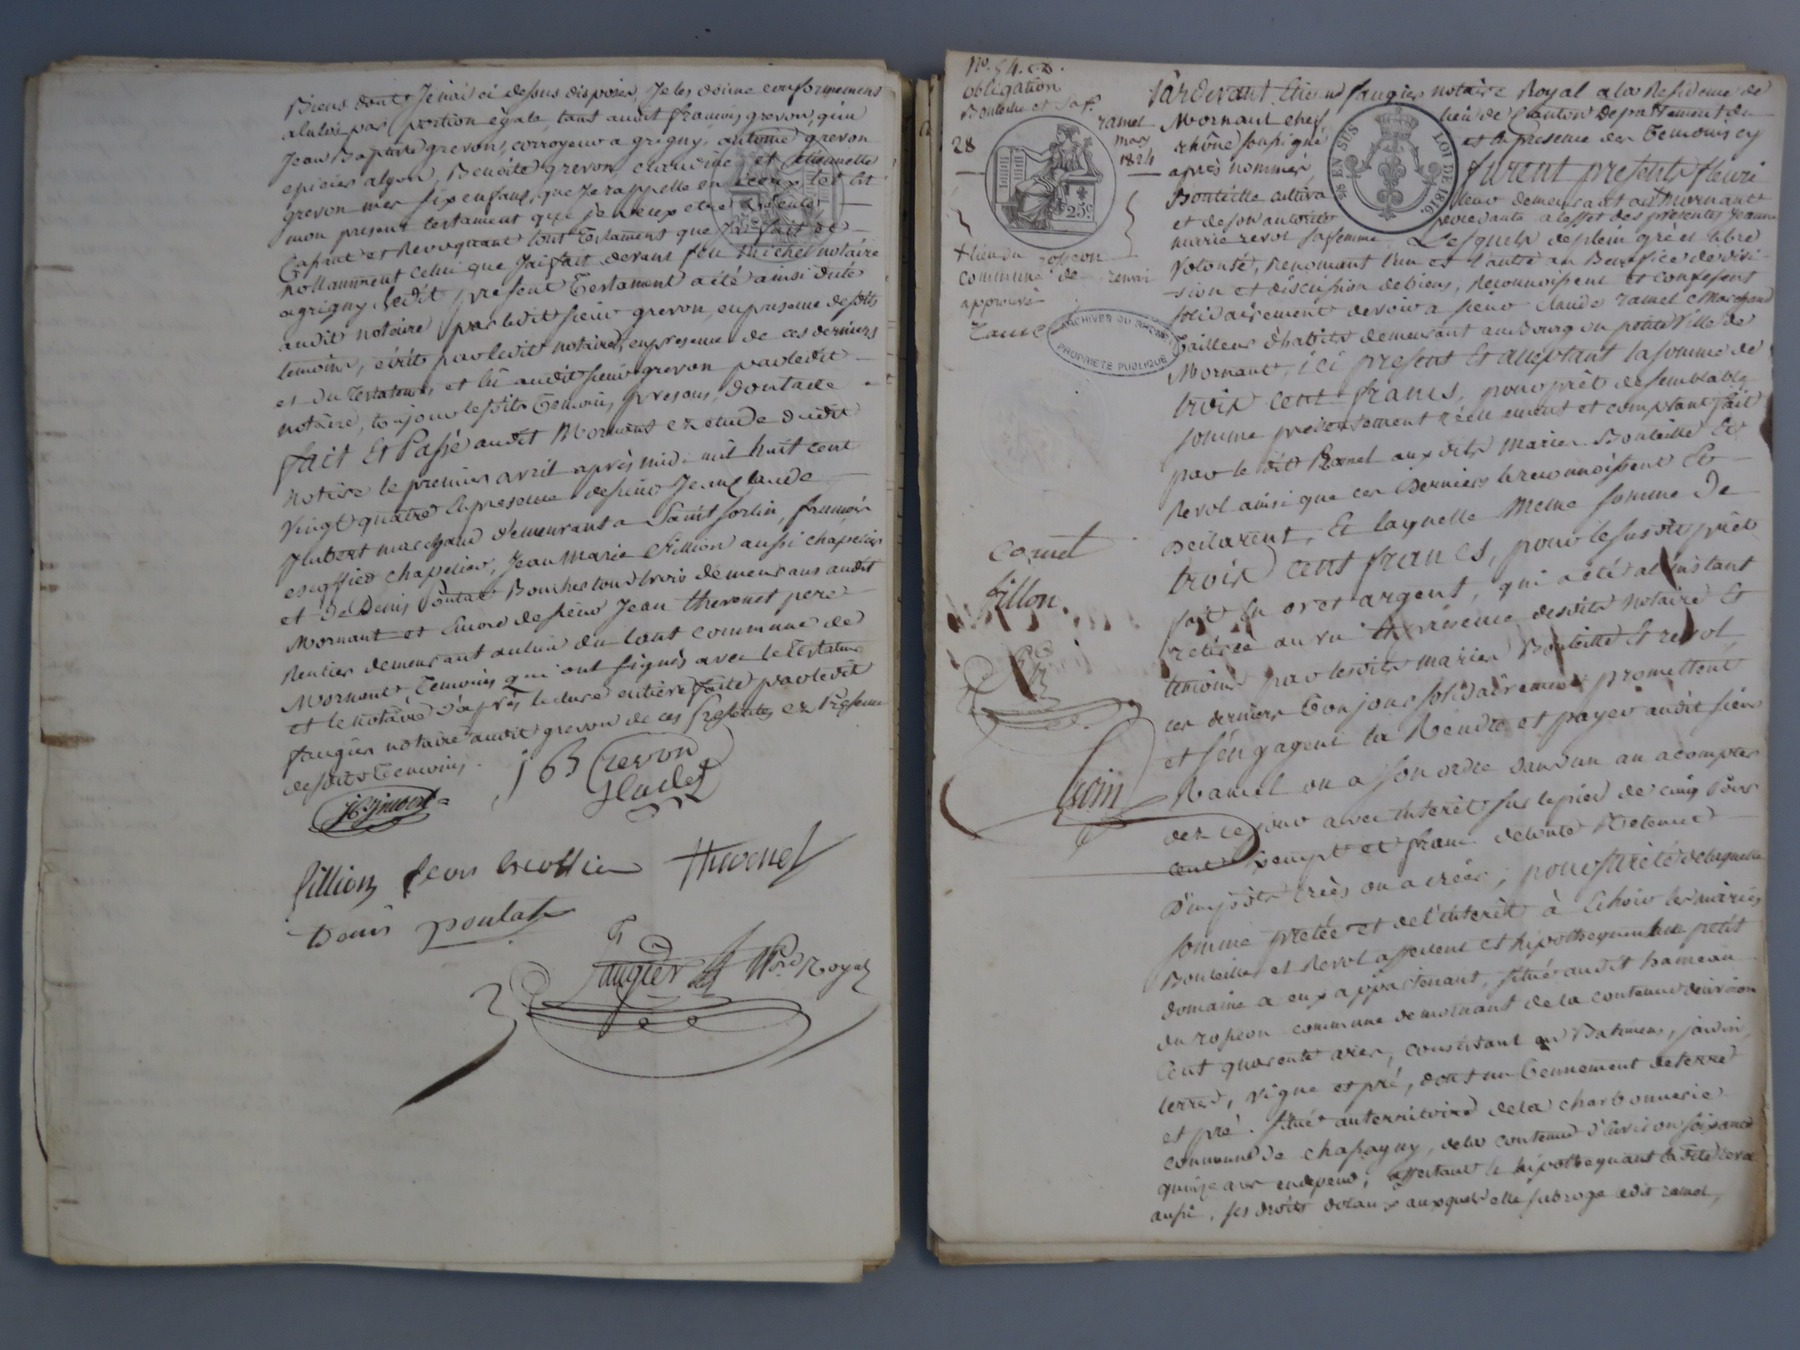 Biens dont Je n'ai ci dessus disposé, Je les donne conformement
a la loi par portion égale, tant audit françois grevon, qu'a
Jean Baptiste grevon, corroyeur a grigny, antoine grevon
epicier a lyon, Benoite grevon, claudine et étiennette
grevon mes six enfans, que Je rappelle en iceux tel est
mon present testament que je veux etre exécuté
Cassant et Revoquant tout Testament que J'ai fait et
notamment celui que J'ai fait devant feu Michel notaire
a grigny, ledit present Testament a été ainsi dicté
audit notaire par ledit sieur grevon, en presence desdits
temoins, écrit par ledit notaire, en presence de ces derniers
et du Testateur, et lû audit sieur grevon par ledit
notaire, toujours lesdits temoins presens, dont acte
fait Et Passé audit Mornant en etude dudit
notaire le premier avril après midi mil huit cent
vingt quatre En presence de sieur Jean Claude
Imbert marchand demeurant a Saint Sorlin, françois
escoffier chapelier, Jean Marie fillion aussi chapelier
et de Denis Poulat Boucher tous trois demeurans audit
Mornant et Encore de sieur Jean thevenet pere
Rentier demeurant au lieu du lont commune de
Mornant temoins qui ont signés avec le Testateur
et le notaire d'après lecture entière faite par ledit
faugier notaire audit grevon de ces presentes en Presence
desdits temoins.
JC jmbert
j b Grevon
fillion
thevenet
Denis poulat
faugier Nre Royal
No. 54.
obligation
Bouteille et sa fe
ramel
28
mars
1824
25c
EN SUS
LOI DE 1816.
+ lieu du rosseon
commune de
approuvé
ramel
ARCHIVES DU RHONE
PROPRIETE PUBLIQUE
fillon.
Pardevant Etienne faugier notaire Royal a la Residence de
Mornant chef lieu de Canton departement du
rhône soussigné et En Presence des temoins cy
après nommés, furent presents fleuri
Bouteille cultivateur demeurant au + mornant
et de son autorité procedante a l'effet des presentes Jeanne
marie revol sa femme. Lesquels de plein gré et libre
Volonté, Renonçant l'un et l'autre au Benefice de divi-
sion et discussion de biens, Reconnoissent et confessent
solidairement devoir a sieur Claude ramel Marchand
Tailleur d'habits demeurant au bourg ou petite Ville de
Mornant, ici present Et acceptant la somme de
trois cent francs, pour prêt de semblable
somme presentement réellement et comptant fait
par ledit Ramel aux dits mariés Bouteille Et
Revol ainsi que ces Derniers le reconnoissent Et
Declarent, Et laquelle meme somme De
trois cent francs, pour le susdit prêt
fait En or et argent, qui a été a l'instant
retirée au vu Et presence desdits notaire Et
temoins par lesdits mariés Bouteille Et revol,
ces derniers toujours solidairement promettent
et s'engagent la Rendre et payer audit sieur
Ramel ou a son ordre dans un an a compter
de ce jour avec Interêt sur le pied de cinq pour
cent Exempt et franc de toute Retenue
D'impôts créés ou a créer; pour sûreté de laquelle
somme prêtée et de l'interêt à Echoir les mariés
Bouteille et Revol affectent et hipothequent un petit
domaine a eux appartenant, situé audit hameau
du rosseon commune de mornant de la contenue d'environ
Cent quarente ares, consistant en Batimens, jardin,
terre, vigne et pré, dont un tennement de terre
et pré situé au territoire de la charbonnerie
commune de chassagny, de la contenue d'environ soixante
quinze ares en depend; affectant et hipothequant ladite revol
aussi, ses droits dotaux auxquels elle subroge ledit ramel,